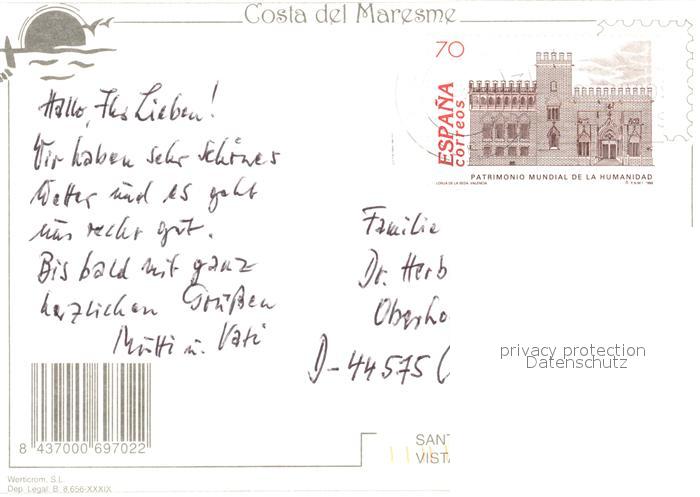 Costa del Maresme
70
ESPAÑA
correos
PATRIMONIO MUNDIAL DE LA HUMANIDAD
LONJA DE LA SEDA. VALENCIA
Hallo, Ihr Lieben!
Wir haben sehr schönes
Wetter und es geht
uns recht gut.
Bis bald mit ganz
herzlichen Grüßen
Mutti u. Vati
Familie
Dr. Herb
Oberho
D-44575
privacy protection
Datenschutz
8 437000 697022
SANT
VISTA
Werticrom, S.L.
Dep. Legal: B. 8.656-XXXIX